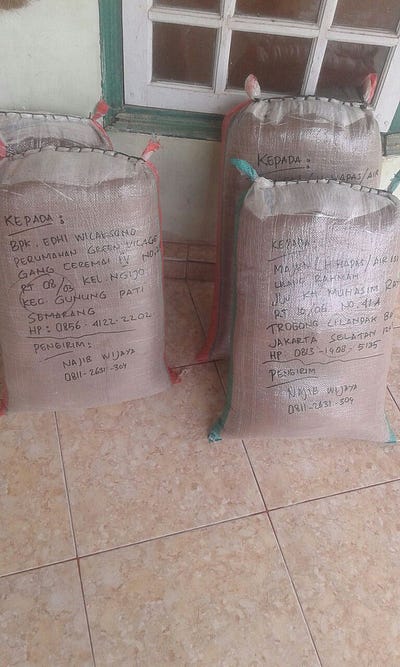 KEPADA :
BPK. EDHI WICAKSONO
PERUMAHAN GREEN VILAGE
GANG CEREMAI IV NO.
RT 08/03 KEL NGIJO
KEC GUNUNG PATI
SEMARANG
HP : 0856-4122-2202
PENGIRIM :
NAJIB WIJAYA
0811-2631-304
KEPADA :
KEPADA :
RAHMAH
RT 10/06 NO. 41A
CILANDAK
JAKARTA SELATAN
HP 0813-1908-5135
PENGIRIM
NAJIB WIJAYA
0811-2631-304